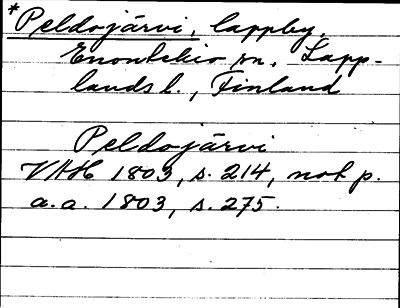 *Peldojärvi, lappby,
Enontekio sn, Lapp-
lands l., Finland
Peldojärvi
VAH 1803, s. 214, not p.
a.a. 1803, s. 275.